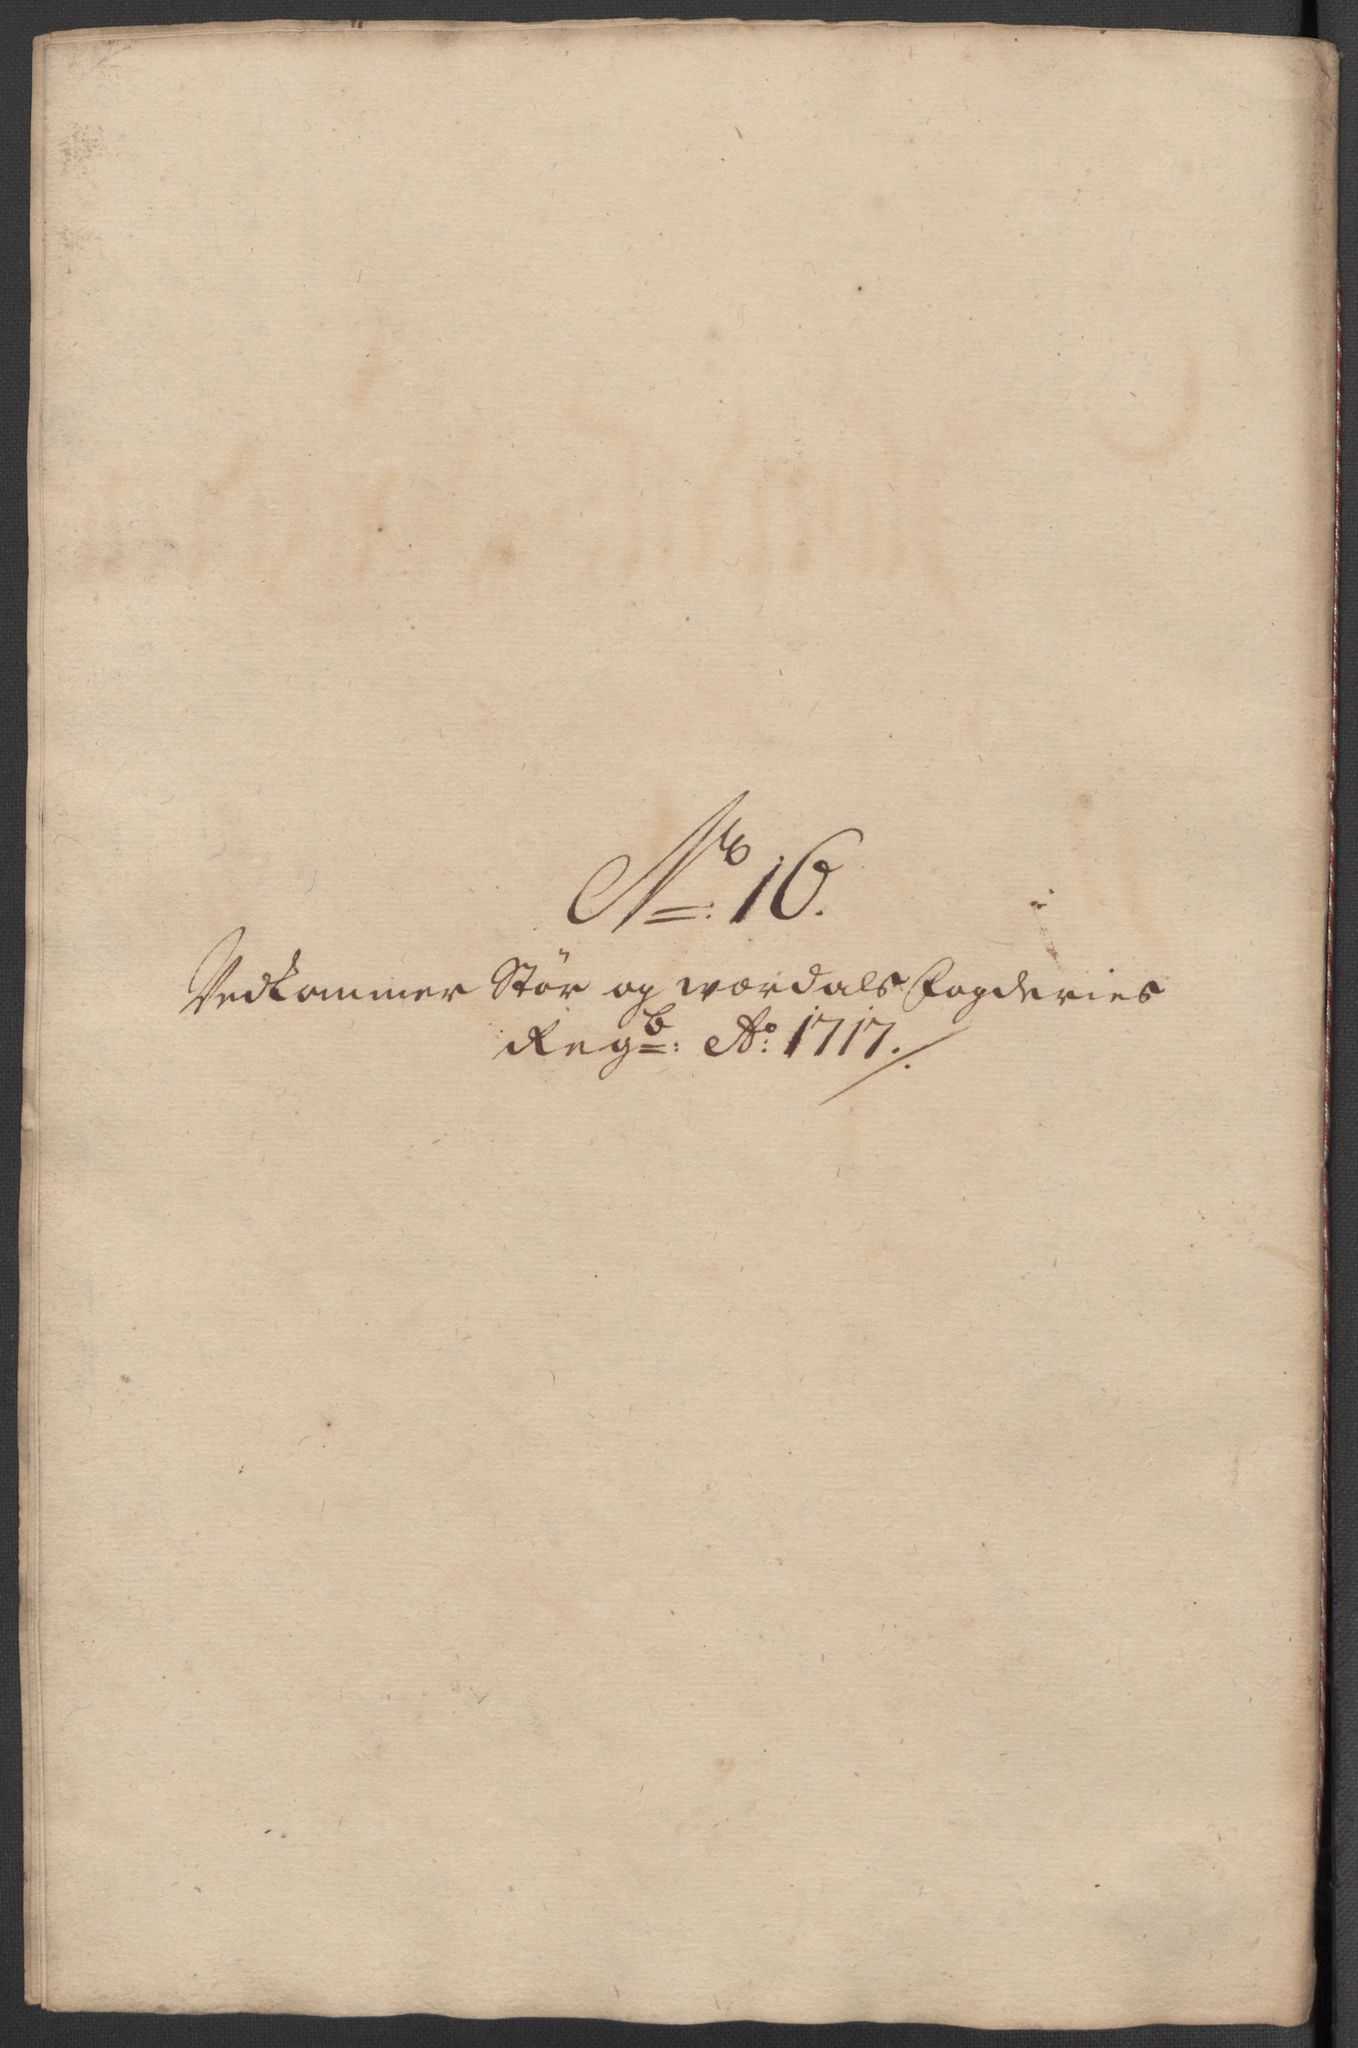 No: 16.
Vedkommer Stör og værdals Fogderies
Regb: Ao: 1717.